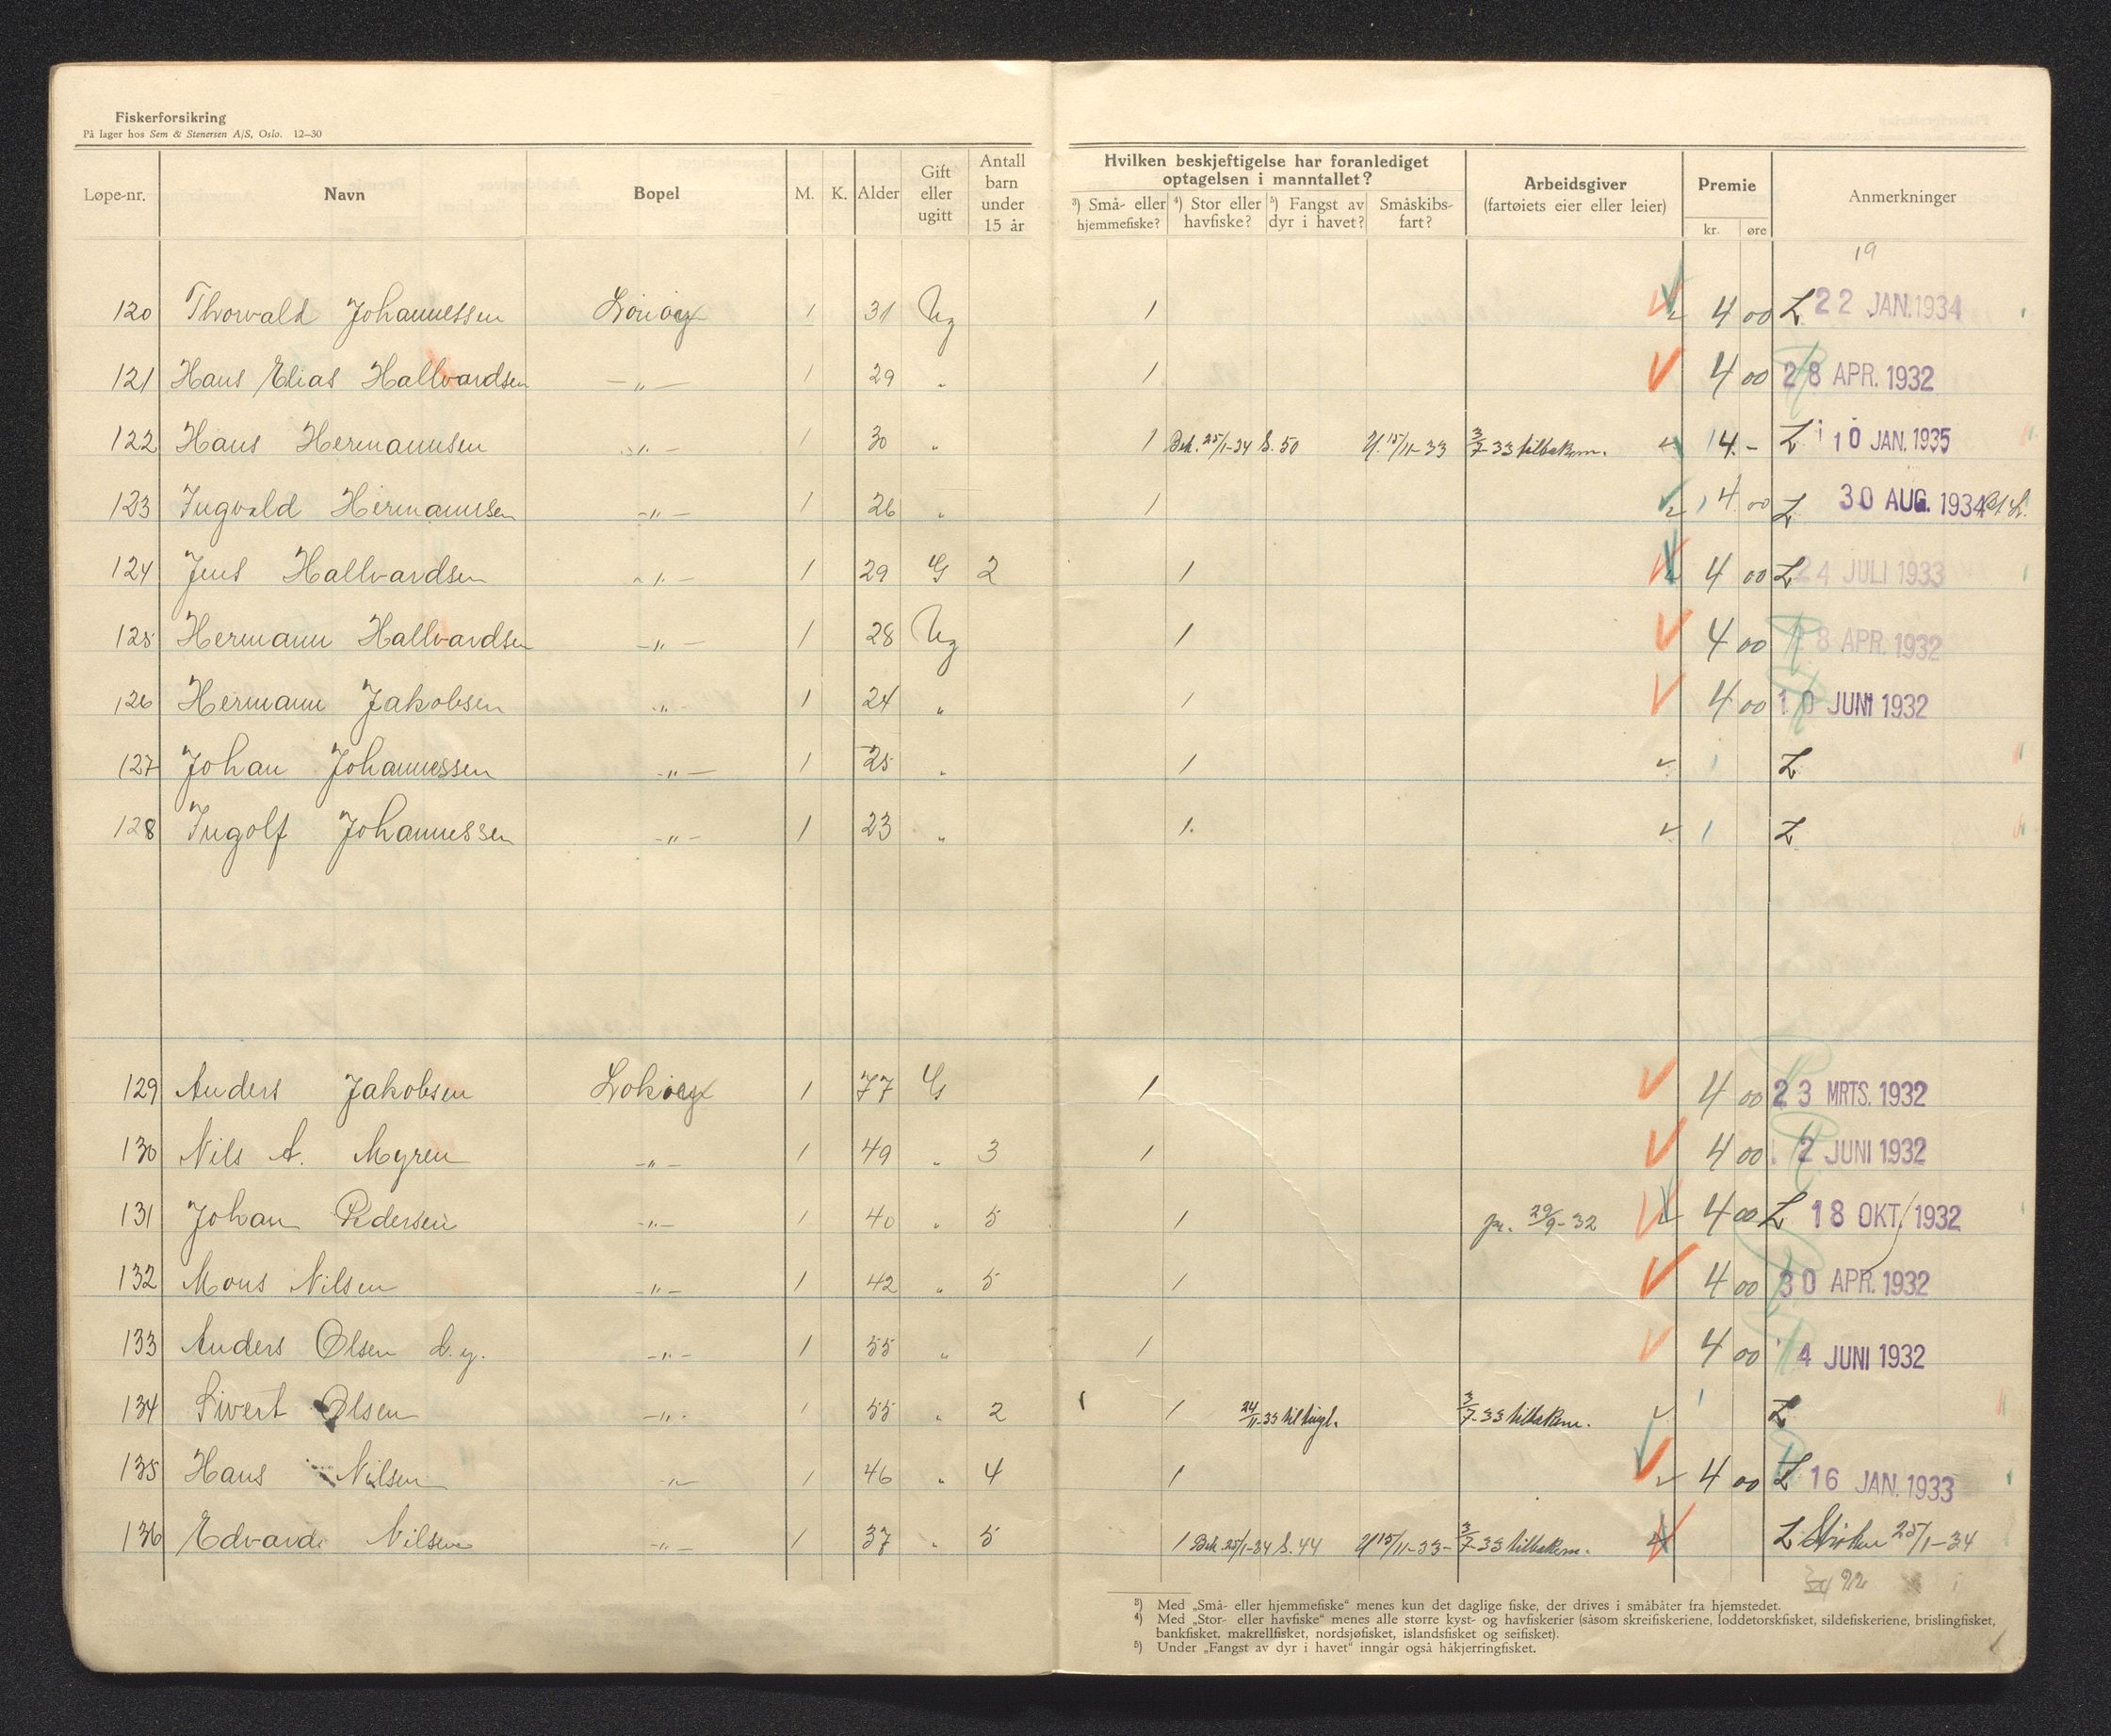 Fiskerforsikring
På lager hos Sem & Stenersen A/S, Oslo. 12–30
Løpe-nr. Navn Bopel M. K. Alder Gift eller ugitt Antall barn under 15 år Hvilken beskjeftigelse har foranlediget optagelsen i manntallet? ³) Små- eller hjemmefiske? ⁴) Stor eller havfiske? ⁵) Fangst av dyr i havet? Småskibs- fart? Arbeidsgiver (fartøiets eier eller leier) Premie kr. øre Anmerkninger
19
120 Thorvald Johannessen 1 31 Ug 1 4 00 Z 22 JAN. 1934
121 Hans Elias Hallvardsen —〃— 1 29 〃 1 4 00 28 APR. 1932
122 Hans Hermannsen —〃— 1 30 〃 1 Bek. 25/1-34 S. 50 U. 15/11-33 3/7-33 tilbakem. 1 4.- Z 10 JAN. 1935
123 Ingvald Hermannsen —〃— 1 26 〃 1 1 4 00 Z 30 AUG. 1934
124 Jens Hallvardsen —〃— 1 29 G 2 1 4 00 Z 24 JULI 1933
125 Hermann Hallvardsen —〃— 1 28 Ug 1 4 00 28 APR. 1932
126 Hermann Jakobsen —〃— 1 24 〃 1 4 00 10 JUNI 1932
127 Johan Johannessen —〃— 1 25 〃 1 1 Z
128 Ingolf Johannessen —〃— 1 23 〃 1. 1 Z
129 Anders Jakobsen Lokøy 1 77 G 1 4 00 23 MRTS. 1932
130 Nils A. Myren —〃— 1 49 〃 3 1 4 00 2 JUNI 1932
131 Johan Pedersen —〃— 1 40 〃 5 1 29/9-32 4 00 Z 18 OKT. 1932
132 Mons Nilsen —〃— 1 42 〃 5 1 4 00 30 APR. 1932
133 Anders Olsen d.y. —〃— 1 55 〃 1 4 00 4 JUNI 1932
134 Sivert Olsen —〃— 1 55 〃 2 1 24/11-33 3/7-33 tilbakem. 1 Z
135 Hans Nilsen —〃— 1 46 〃 4 1 4 00 Z 16 JAN. 1933
136 Edvard Nilsen —〃— 1 37 〃 5 1 Bek. 25/1-34 S. 44 U 15/11-33- 3/7-33 tilbakem. Z 25/1-34
22
³) Med „Små- eller hjemmefiske“ menes kun det daglige fiske, der drives i småbåter fra hjemstedet.
⁴) Med „Stor- eller havfiske“ menes alle større kyst- og havfiskerier (såsom skreifiskeriene, loddetorskfisket, sildefiskeriene, brislingfisket,
bankfisket, makrellfisket, nordsjøfisket, islandsfisket og seifisket).
⁵) Under „Fangst av dyr i havet“ inngår også håkjerringfisket.